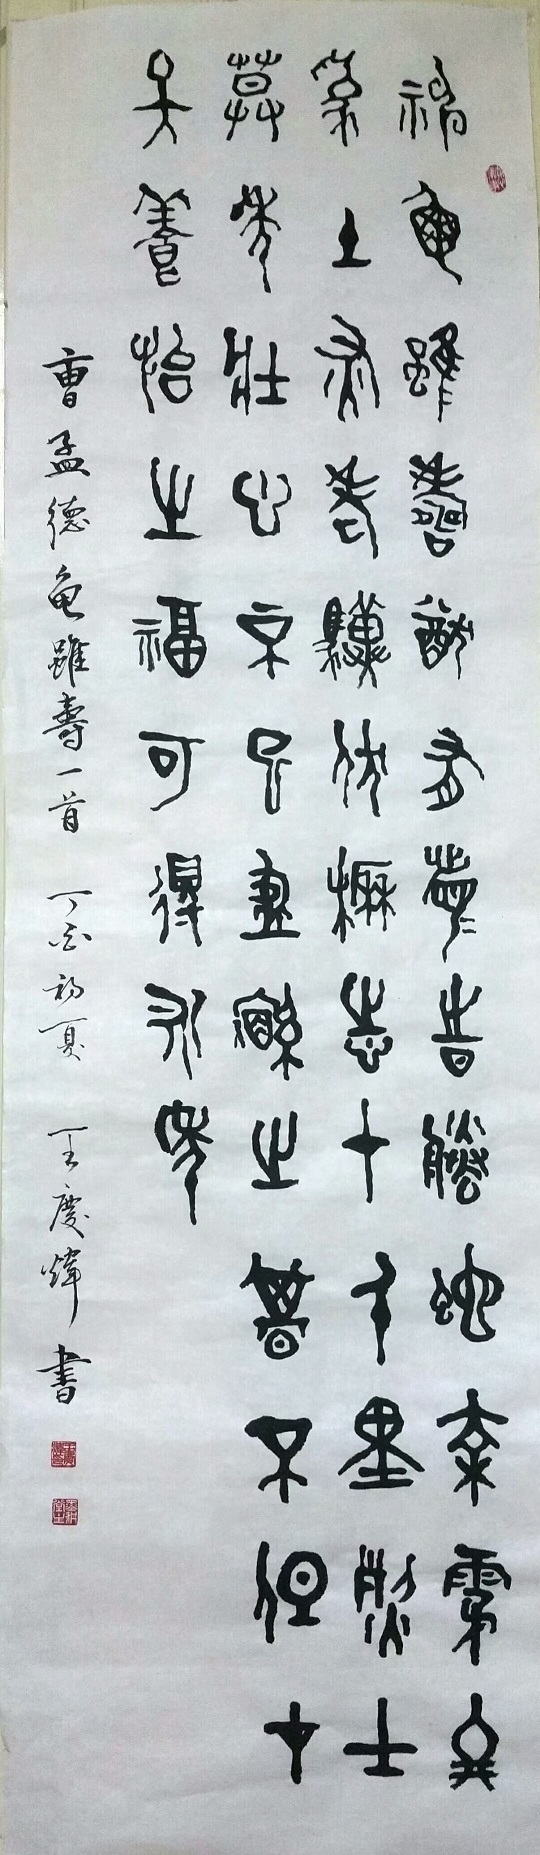 神龜雖壽猶有竟時騰蛇乘霧終
為土灰老驥伏櫪志在千里烈士
暮年壯心不已盈縮之期不但在
天養怡之福可得永年
曹孟德龟雖壽一首 丁酉初夏 王慶煒書